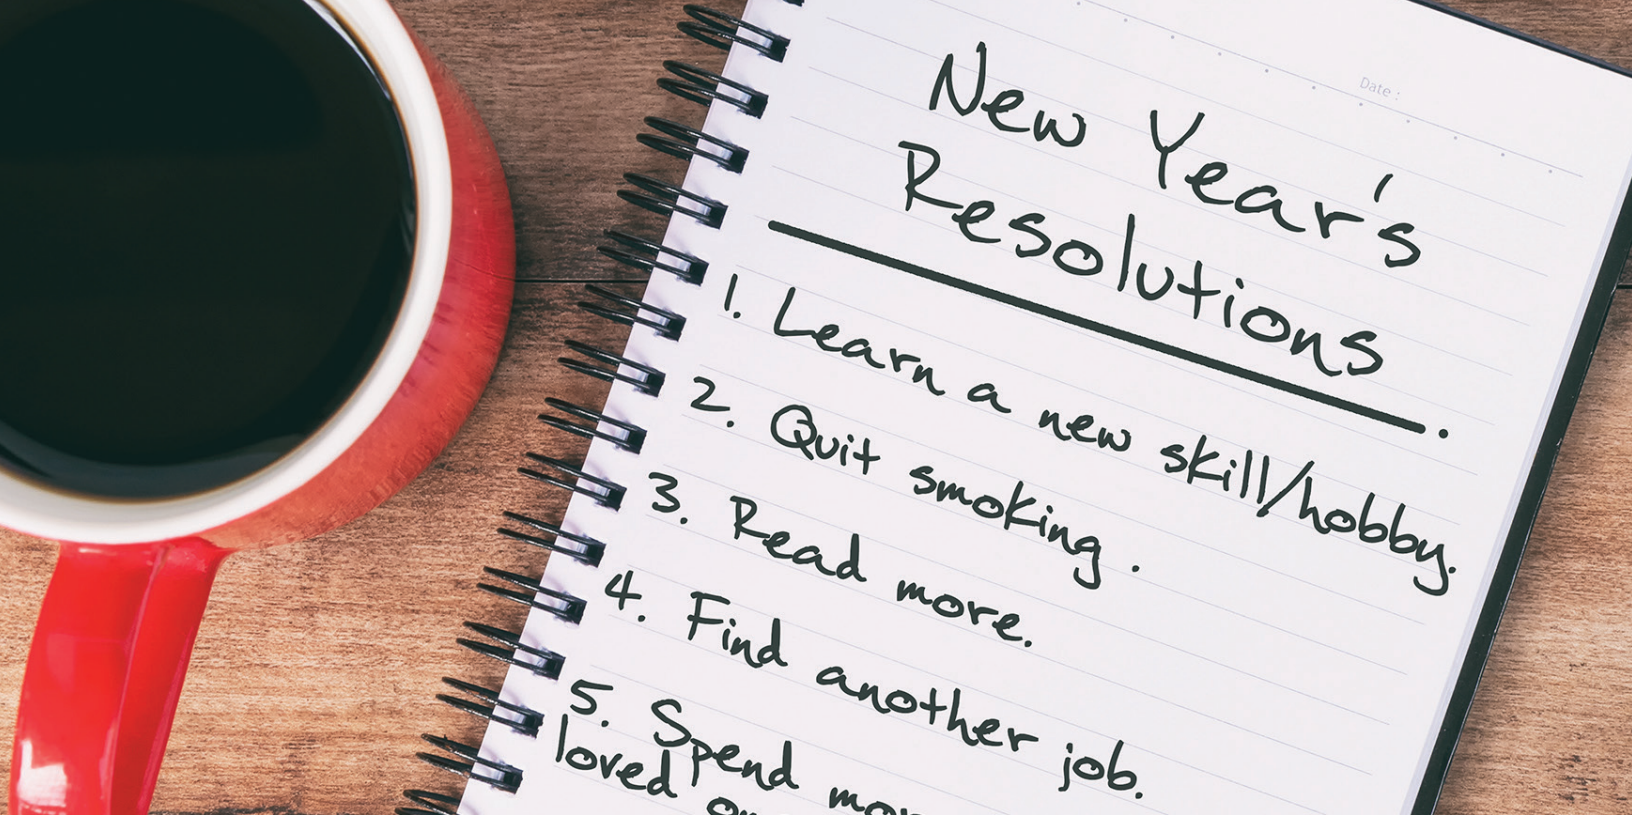 Date :
New Year's
Resolutions
1. Learn a new skill/hobby.
2. Quit smoking.
3. Read more.
4. Find another job.
5. Spend
loved